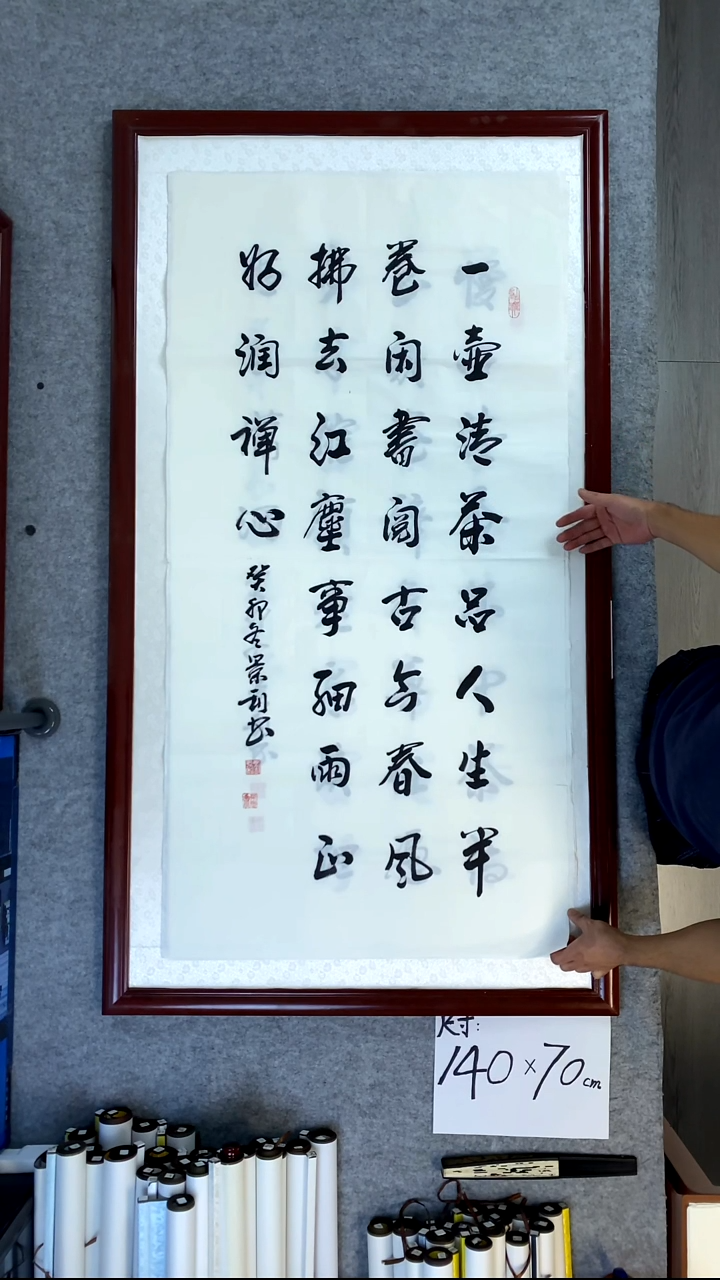 一壶清茶品人生半
卷闲書阅古今春風
拂去红塵事细雨正
好润禅心
癸卯冬景利书
尺寸:
140×70cm